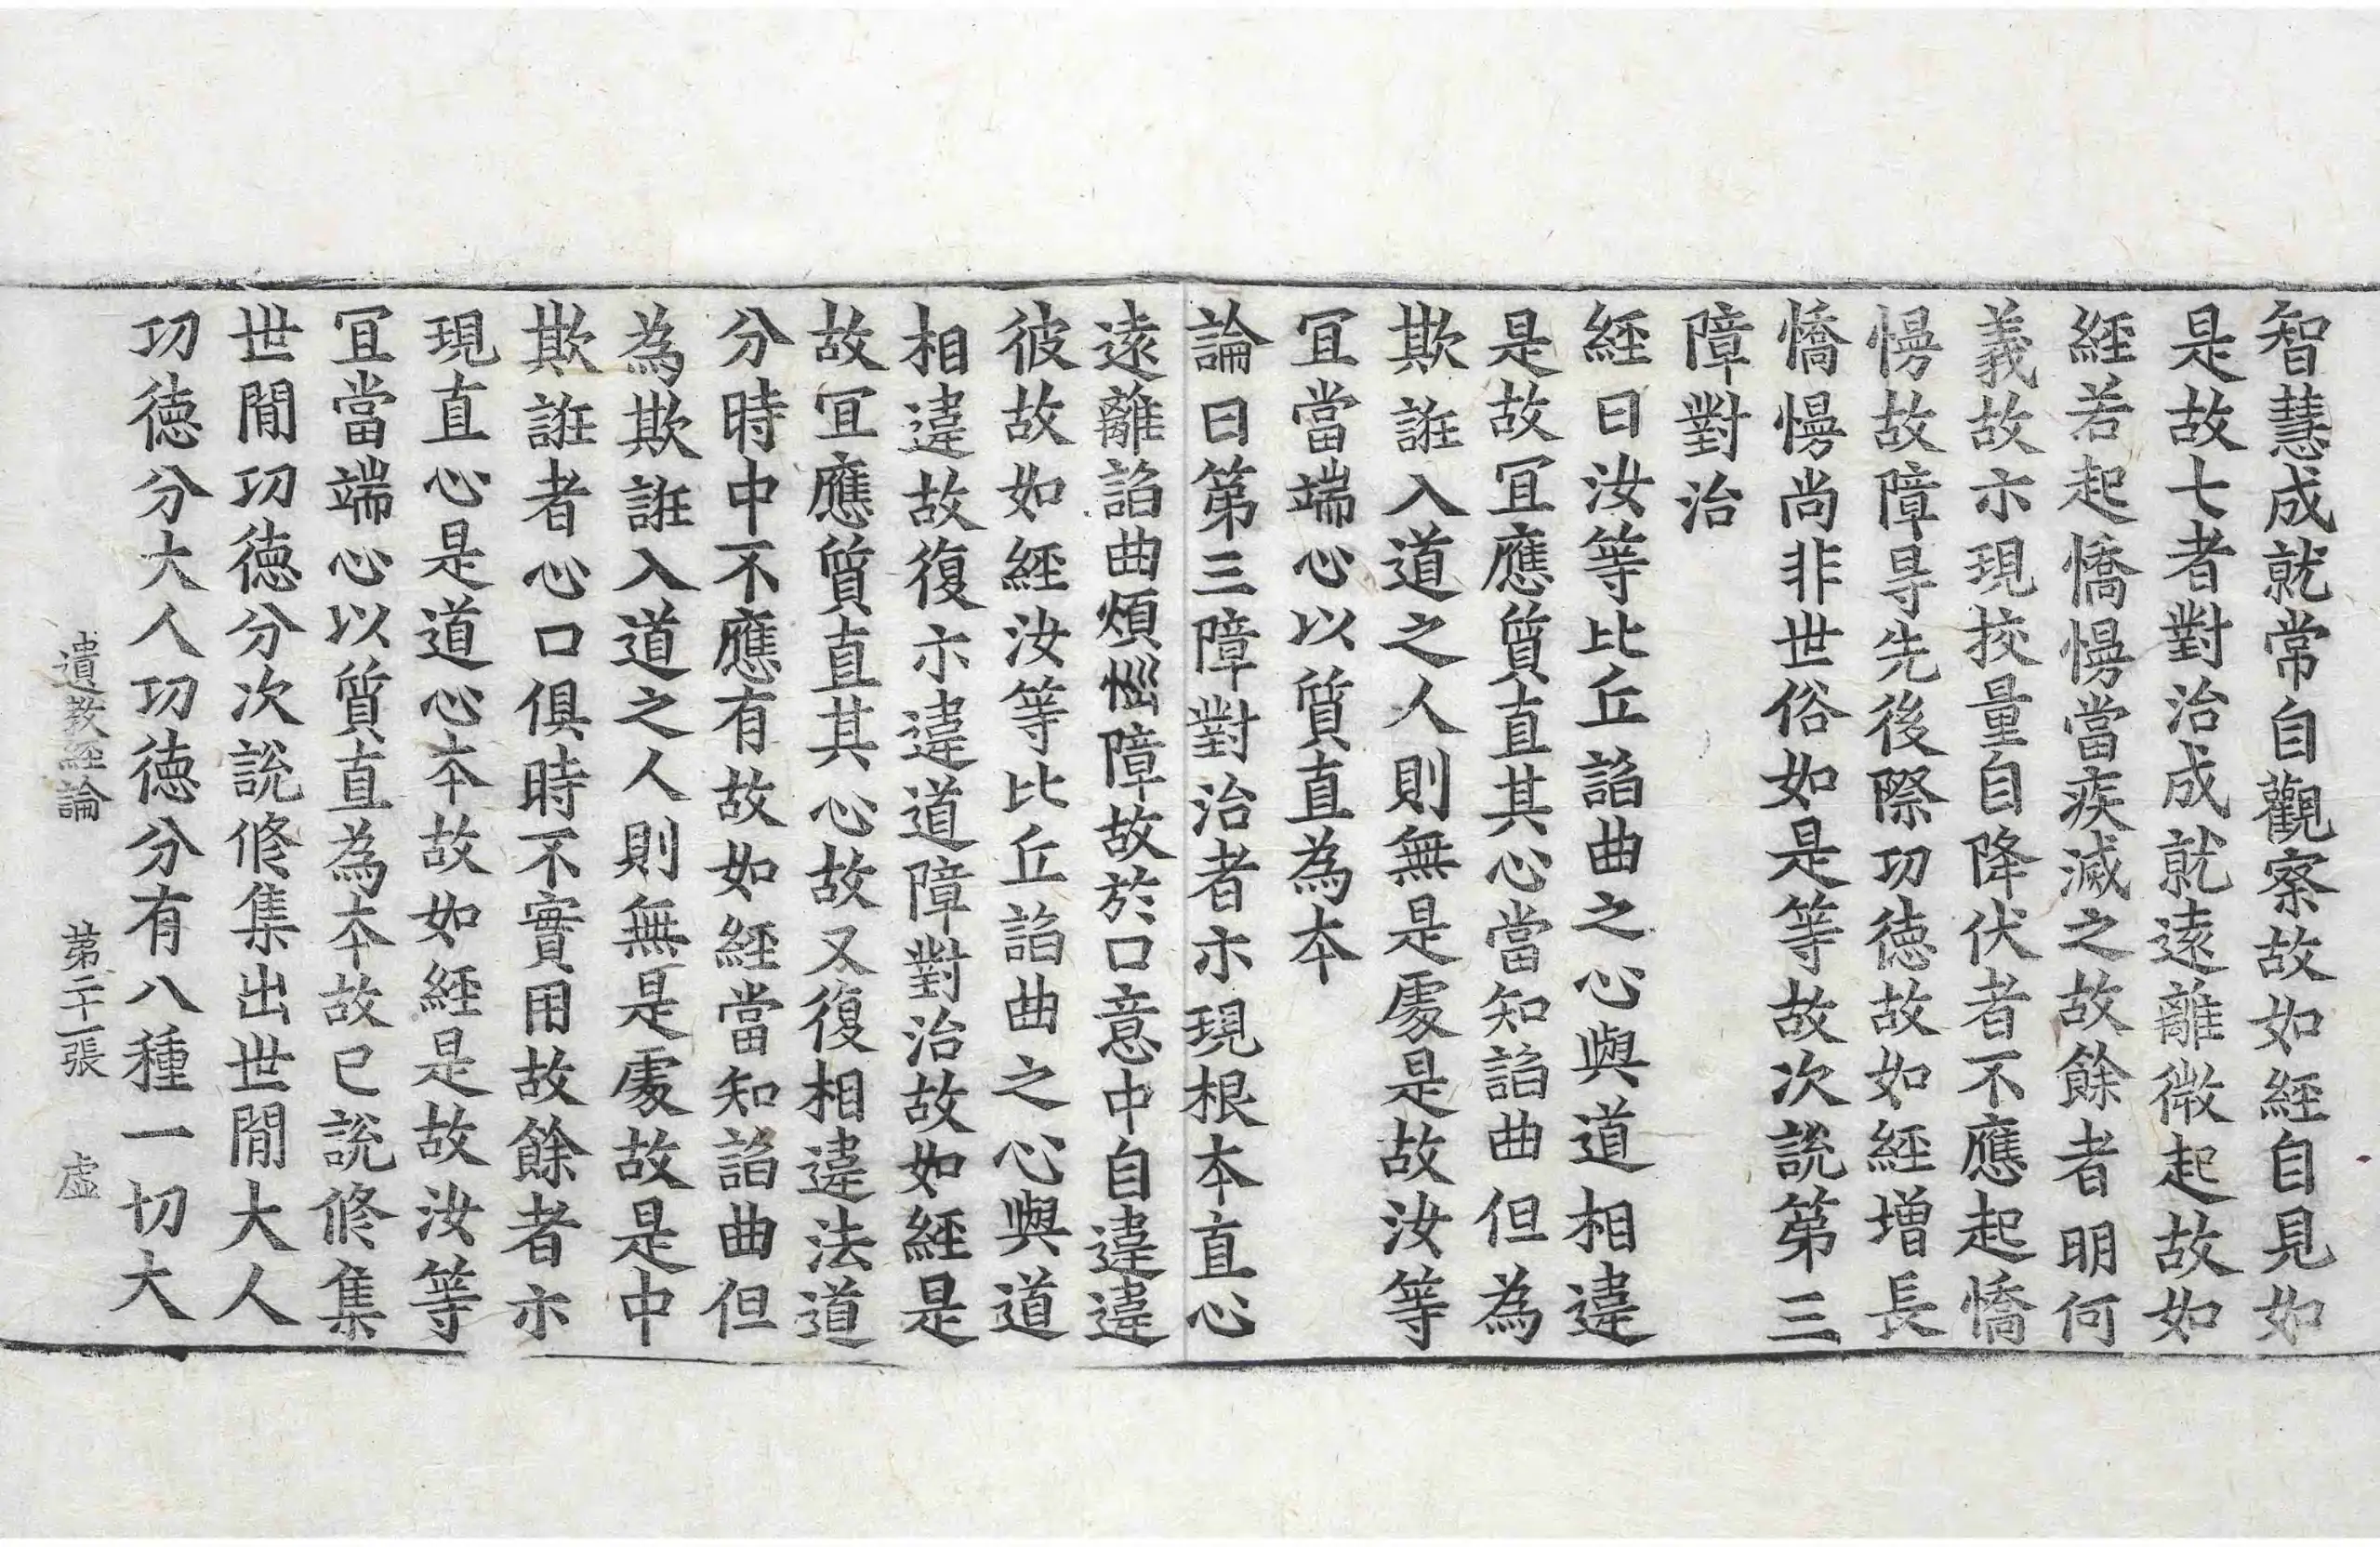 智慧成就常自觀察故如經自見如
是故七者對治成就遠離微起故如
經若起憍慢當疾滅之故餘者明何
義故示現挍量自降伏者不應起憍
慢故障㝵先後際功德故如經增長
憍慢尚非世俗如是等故次說第三
障對治
經曰汝等比丘諂曲之心與道相違
是故冝應質直其心當知諂曲但為
欺誑入道之人則無是處是故汝等
冝當端心以質直為本
論曰第三障對治者示現根本直心
遠離諂曲煩惱障故於口意中自違違
彼故如經汝等比丘諂曲之心與道
相違故復示違道障對治故如經是
故冝應質直其心故又復相違法道
分時中不應有故如經當知諂曲但
為欺誑入道之人則無是處故是中
欺誑者心口俱時不實用故餘者示
現直心是道心心本故如經是故汝等
冝當端心以質直為本故已說修集
世間功德分次說修集出世間大人
功德分大人功德分有八種一切大
遺教經論 第二十一張 虛